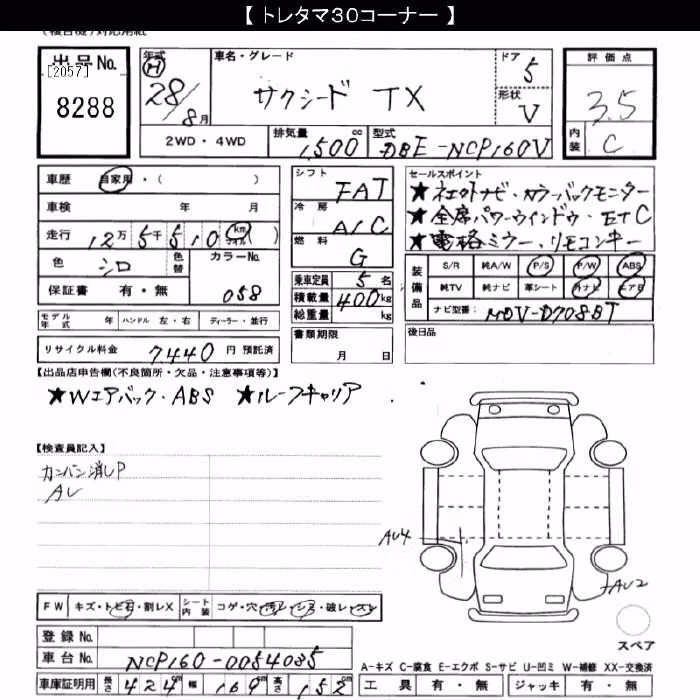 【 トレタマ30コーナー 】
出品No.
[2057]
8288
年式
H
28/8月
車名・グレード
サクシード TX
ドア
5
形状
V
評価点
3.5
内装
C
2WD・4WD
排気量
1,500cc
型式
DBE-NCP160V
車歴 自家用・( )
車検 年 月
走行 12万5千510 km マイル ( )
色 シロ
色替
カラーNo.
058
保証書 有・無
モデル年式 年 ハンドル 左・右 ディーラー・並行
リサイクル料金 7,440 円 預託済
シフト
FAT
冷房
A/C
燃料
G
乗車定員 5 名
積載量 400 kg
総重量 kg
書類期限
月 日
セールスポイント
★ネェクトナビ・カラーバックモニター
★全席パワーウインドゥ・ETC
★電格ミラー、リモコンキー
装備品
S/R 純A/W P/S P/W ABS
純TV 純ナビ 革シート 外ナビ エアB
ナビ型番 MDV-D708BT
後日品
【出品店申告欄(不良箇所・欠品・注意事項等)】
★Wエアバック・ABS ★ルーフキャリア
【検査員記入】
カンバン消しP
AU
AU4
AU2
スペア
FW キズ・トビ石・割レX
シート内装 コゲ・穴・汚レ・シミ・破レ・スレ
登録No.
車台No. NCP160-0054035
車庫証明用 長さ 424cm 幅 169cm 高さ 152cm
A-キズ C-腐食 E-エクボ S-サビ U-凹ミ W-補修 XX-交換済
工具 有・無 ジャッキ 有・無